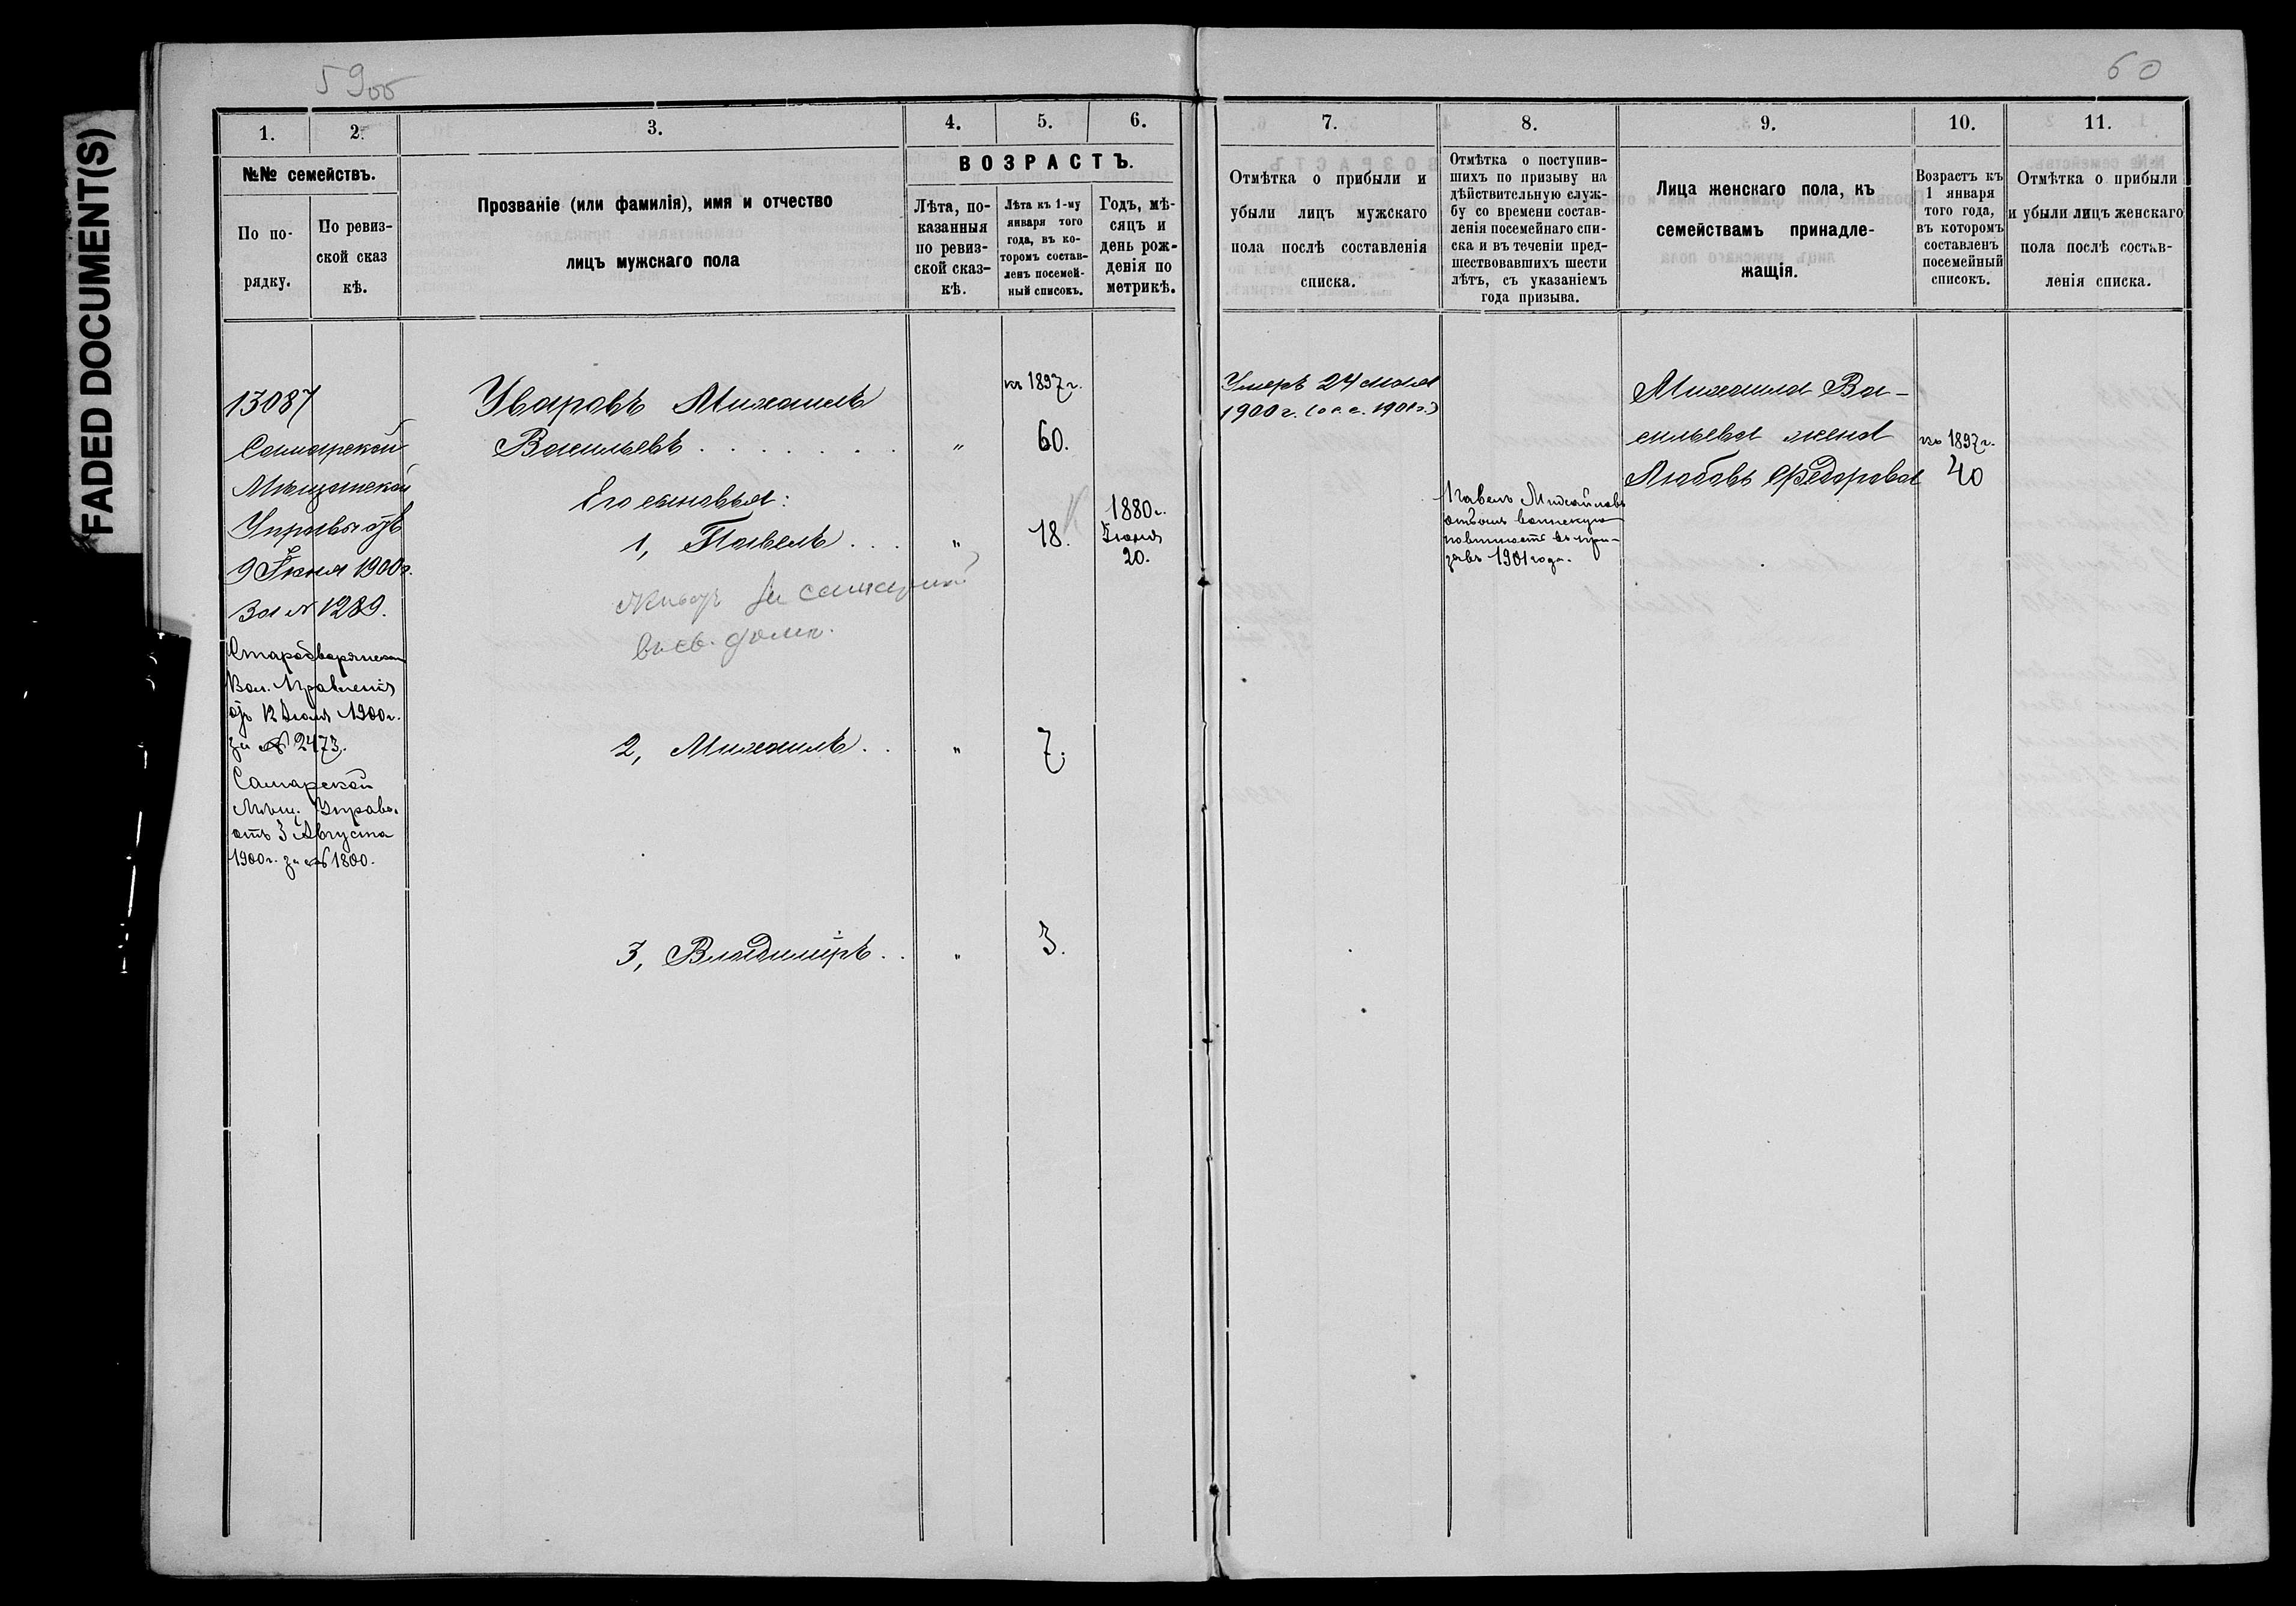 FADED DOCUMENT(S)
59об
60
1.
2.
3.
4.
5.
6.
7.
8.
9.
10.
11.
№№ семействъ.
По по-
рядку.
По ревиз-
ской сказ
кѣ.
Прозваніе (или фамилія), имя и отчество
лицъ мужскаго пола
ВОЗРАСТЪ.
Лѣта, по-
казанныя
по ревиз-
ской сказ-
кѣ.
Лѣта къ 1-му
января того
года, въ ко-
торомъ состав-
ленъ посемей-
ный списокъ.
Годъ, мѣ-
сяцъ и
день рож-
денія по
метрикѣ.
Отмѣтка о прибыли и
убыли лицъ мужскаго
пола послѣ составленія
списка.
Отмѣтка о поступив-
шихъ по призыву на
дѣйствительную служ-
бу со времени состав-
ленія посемейнаго спи-
ска и въ теченіи пред-
шествовавшихъ шести
лѣтъ, съ указаніемъ
года призыва.
Лица женскаго пола, къ
семействамъ принадле-
жащія.
Возрастъ къ
1 января
того года,
въ которомъ
составленъ
посемейный
списокъ.
Отмѣтка о прибыли
и убыли лицъ женскаго
пола послѣ состав-
ленія списка.
13087
Самарской
Мѣщанской
Управы отъ
9 Іюня 1900г.
За № 1289.
Вол. Правленія
отъ 12 Іюля 1900г.
за № 2473.
Самарской
Мѣщ. Управы
отъ 3 Августа
1900г. за № 1800.
Уваровъ Михаилъ
Васильевъ . . . . . . . "
къ 1897г.
60.
Его сыновья:
1, Павелъ . . . " 18.
1880г.
Іюня
20.
Живутъ въ
2, Михаилъ . . " 7.
3, Владиміръ . . " 3.
Умеръ 24 мая
1900г.
Павелъ Михайловъ
отбылъ воинскую
повинность въ при-
зывъ 1901 года.
Михаила Ва-
сильева жена
Любовь Федорова
къ 1897г.
40